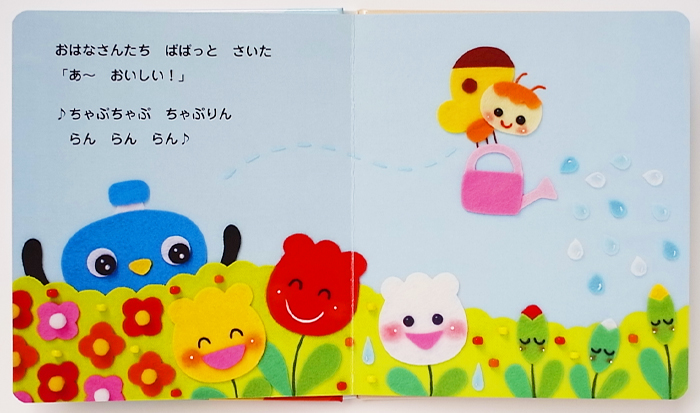 おはなさんたち　ぱぱっと　さいた
「あ～　おいしい！」
♪ちゃぷちゃぷ　ちゃぷりん
らん　らん　らん♪